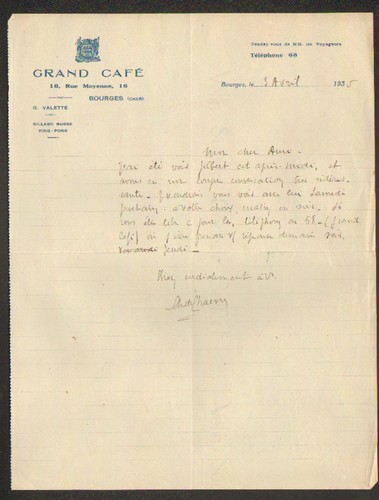 GRAND CAFÉ
16, Rue Moyenne, 16
BOURGES (CHER)
G. VALETTE
BILLARD RUSSE
PING-PONG
Rendez-vous de MM. les Voyageurs
Téléphone 68
Bourges, le 3 Avril 1935
Mon cher Ami.
J'ai été voir Gilbert cet après-midi, et
avons eu une longue conversation très intéres-
sante. Je voudrais vous voir avec lui Samedi
prochain, à votre choix, matin, ou soir. Si
vous êtes libre ce jour là, téléphonez au 68 - (Grand
Café) ou réponse demain soir,
Jeudi. -
Bien cordialement à V.